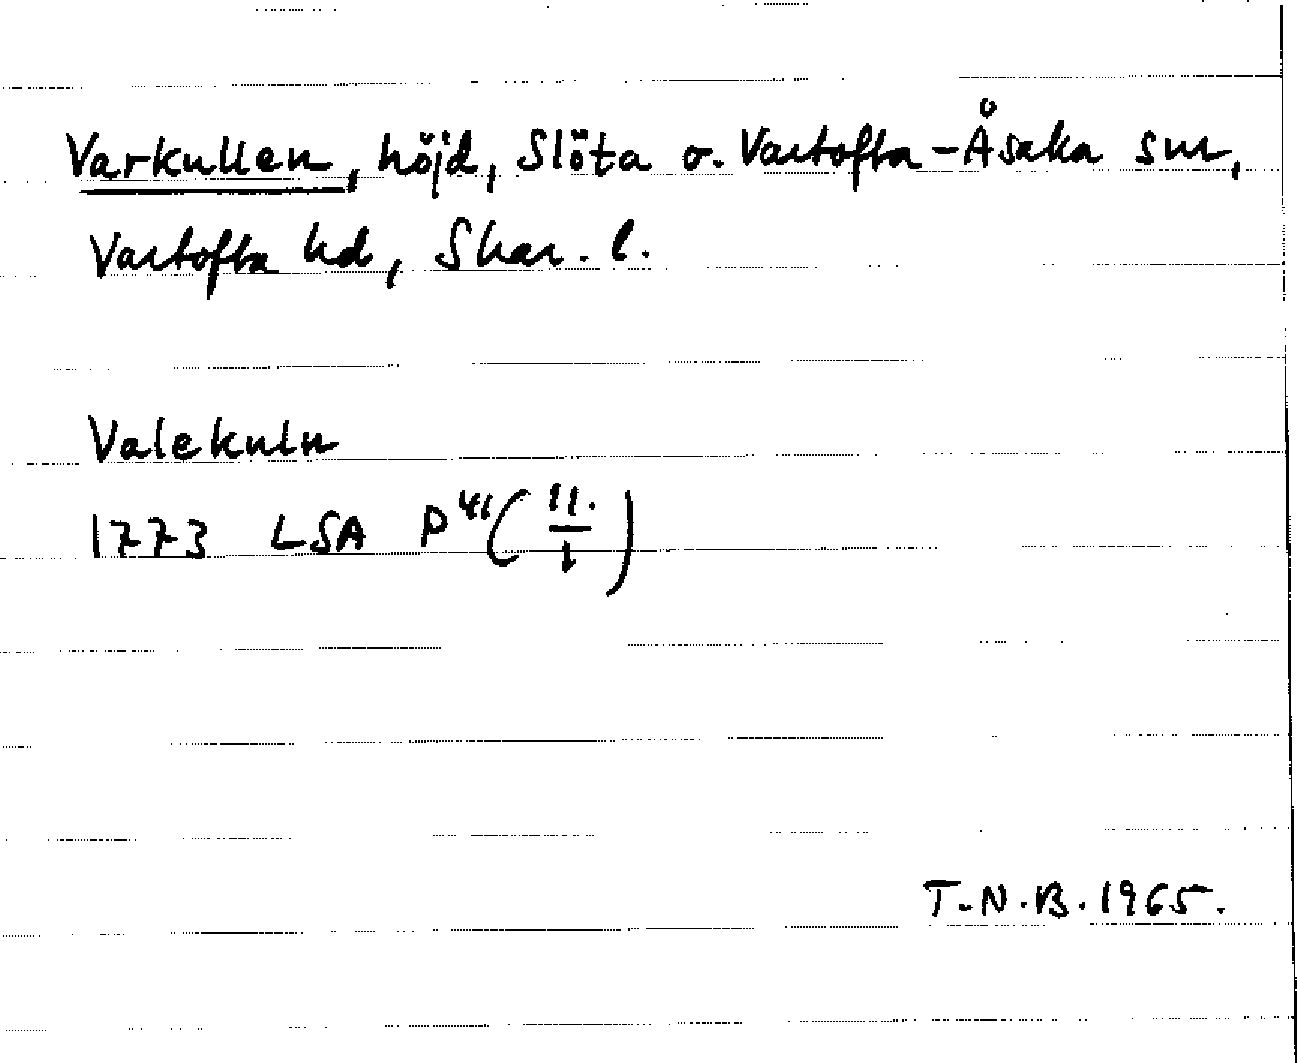 Varkullen, höjd, Slöta o. Vartofta-Åsaka snr,
Vartofta hd, Skar. l.
Valekuln
1773 LSA P 41 (11./1)
T.N.B. 1965.